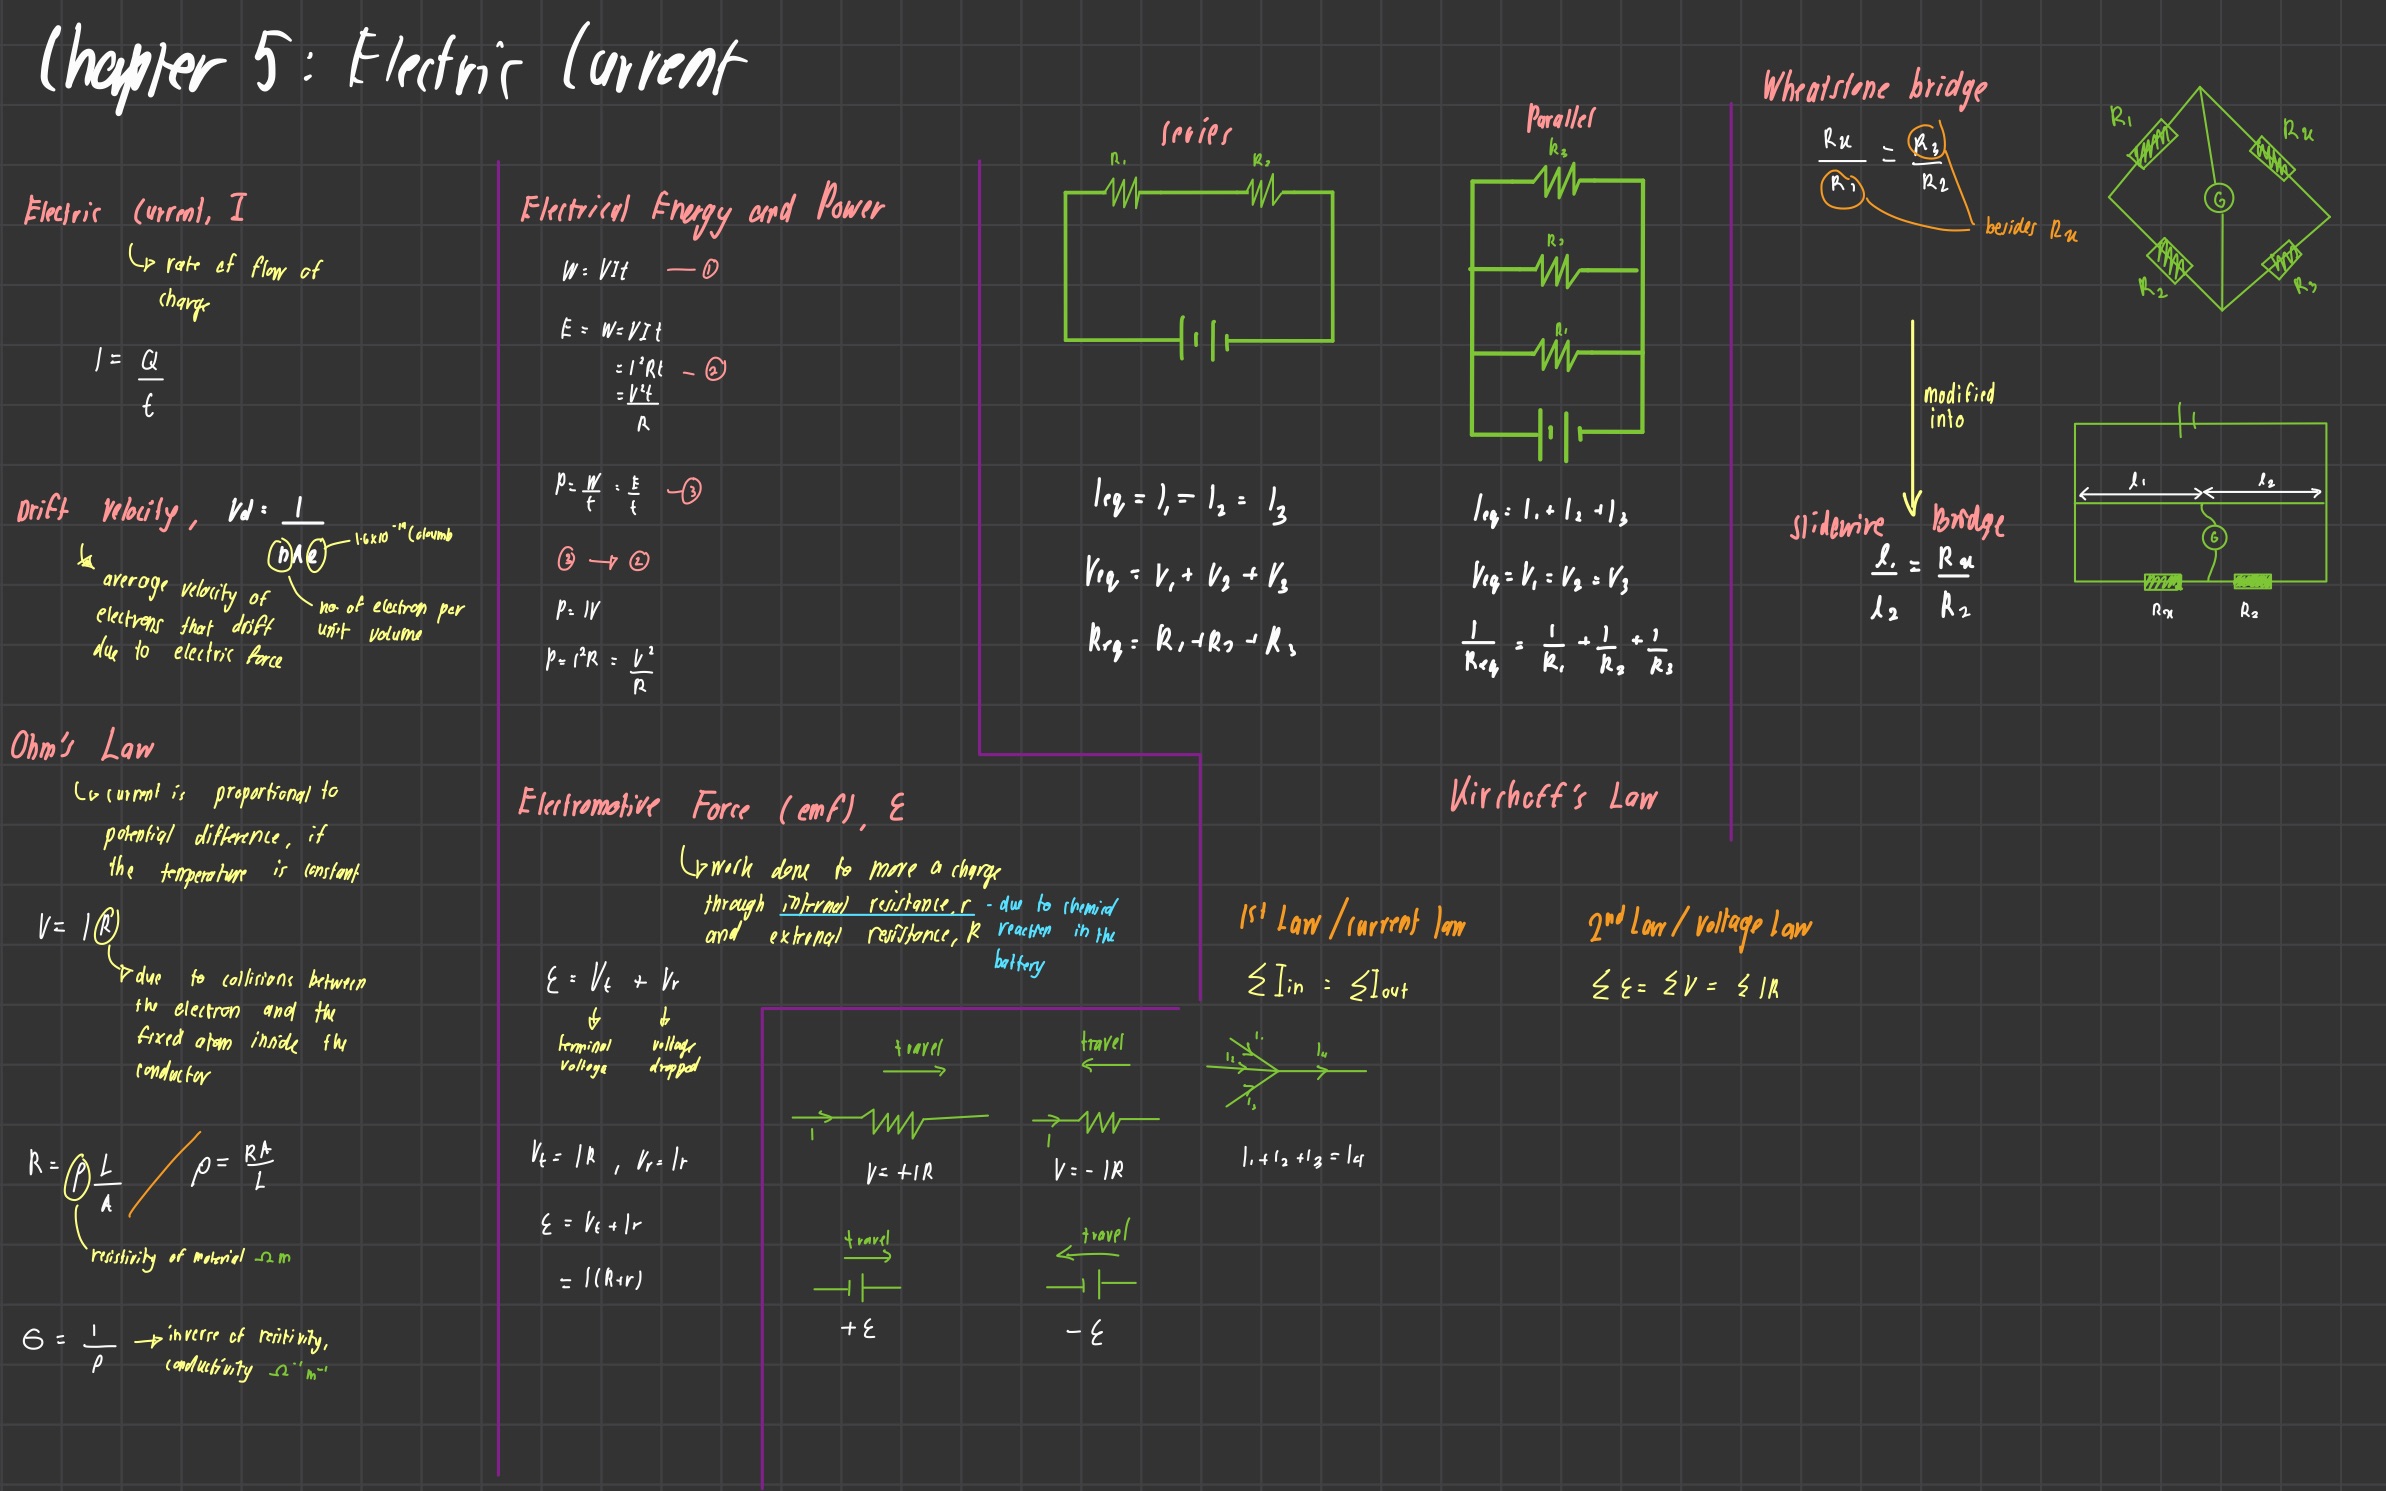 Chapter 5: Electric Current
Electric Current, I
rate of flow of
charge
I = Q/t
Drift Velocity, Vd = I/nAe
1.6x10⁻¹⁹ Coloumb
average velocity of
electrons that drift
due to electric force
no. of electron per
unit volume
Ohm's Law
current is proportional to
potential difference, if
the temperature is constant
V = IR
due to collisions between
the electron and the
fixed atom inside the
conductor
R = ρ L/A / ρ = RA/L
resistivity of material Ωm
σ = 1/ρ → inverse of resitivity,
conductivity Ω⁻¹m⁻¹
Electrical Energy and Power
W = VIt — ①
E = W = VIt
= I²Rt — ②
= V²t/R
P = W/t = E/t — ③
③ → ②
P = IV
P = I²R = V²/R
Electromotive Force (emf), ε
work done to move a charge
through internal resistance, r - due to chemical
and external resistance, R reaction in the
battery
ε = Vt + Vr
terminal voltage
voltage dropped
Vt = IR, Vr = Ir
ε = Vt + Ir
= I(R+r)
travel
I
V = +IR
travel
I
V = -IR
travel
+ε
travel
-ε
series
R₁ R₂
Ieq = I₁ = I₂ = I₃
Veq = V₁ + V₂ + V₃
Req = R₁ + R₂ + R₃
Parallel
R₃
R₂
R₁
Ieq = I₁ + I₂ + I₃
Veq = V₁ = V₂ = V₃
1/Req = 1/R₁ + 1/R₂ + 1/R₃
Kirchoff's Law
1st Law / current law
ΣIin = ΣIout
I₁ I₂ I₃ I₄
I₁ + I₂ + I₃ = I₄
2nd Law / voltage Law
Σε = ΣV = ΣIR
Wheatstone bridge
Rx/R₁ = R₃/R₂
besides Rx
R₁ Rx
G
R₂ R₃
modified
into
Slidewire Bridge
l₁/l₂ = Rx/R₂
l₁ l₂
G
Rx R₂